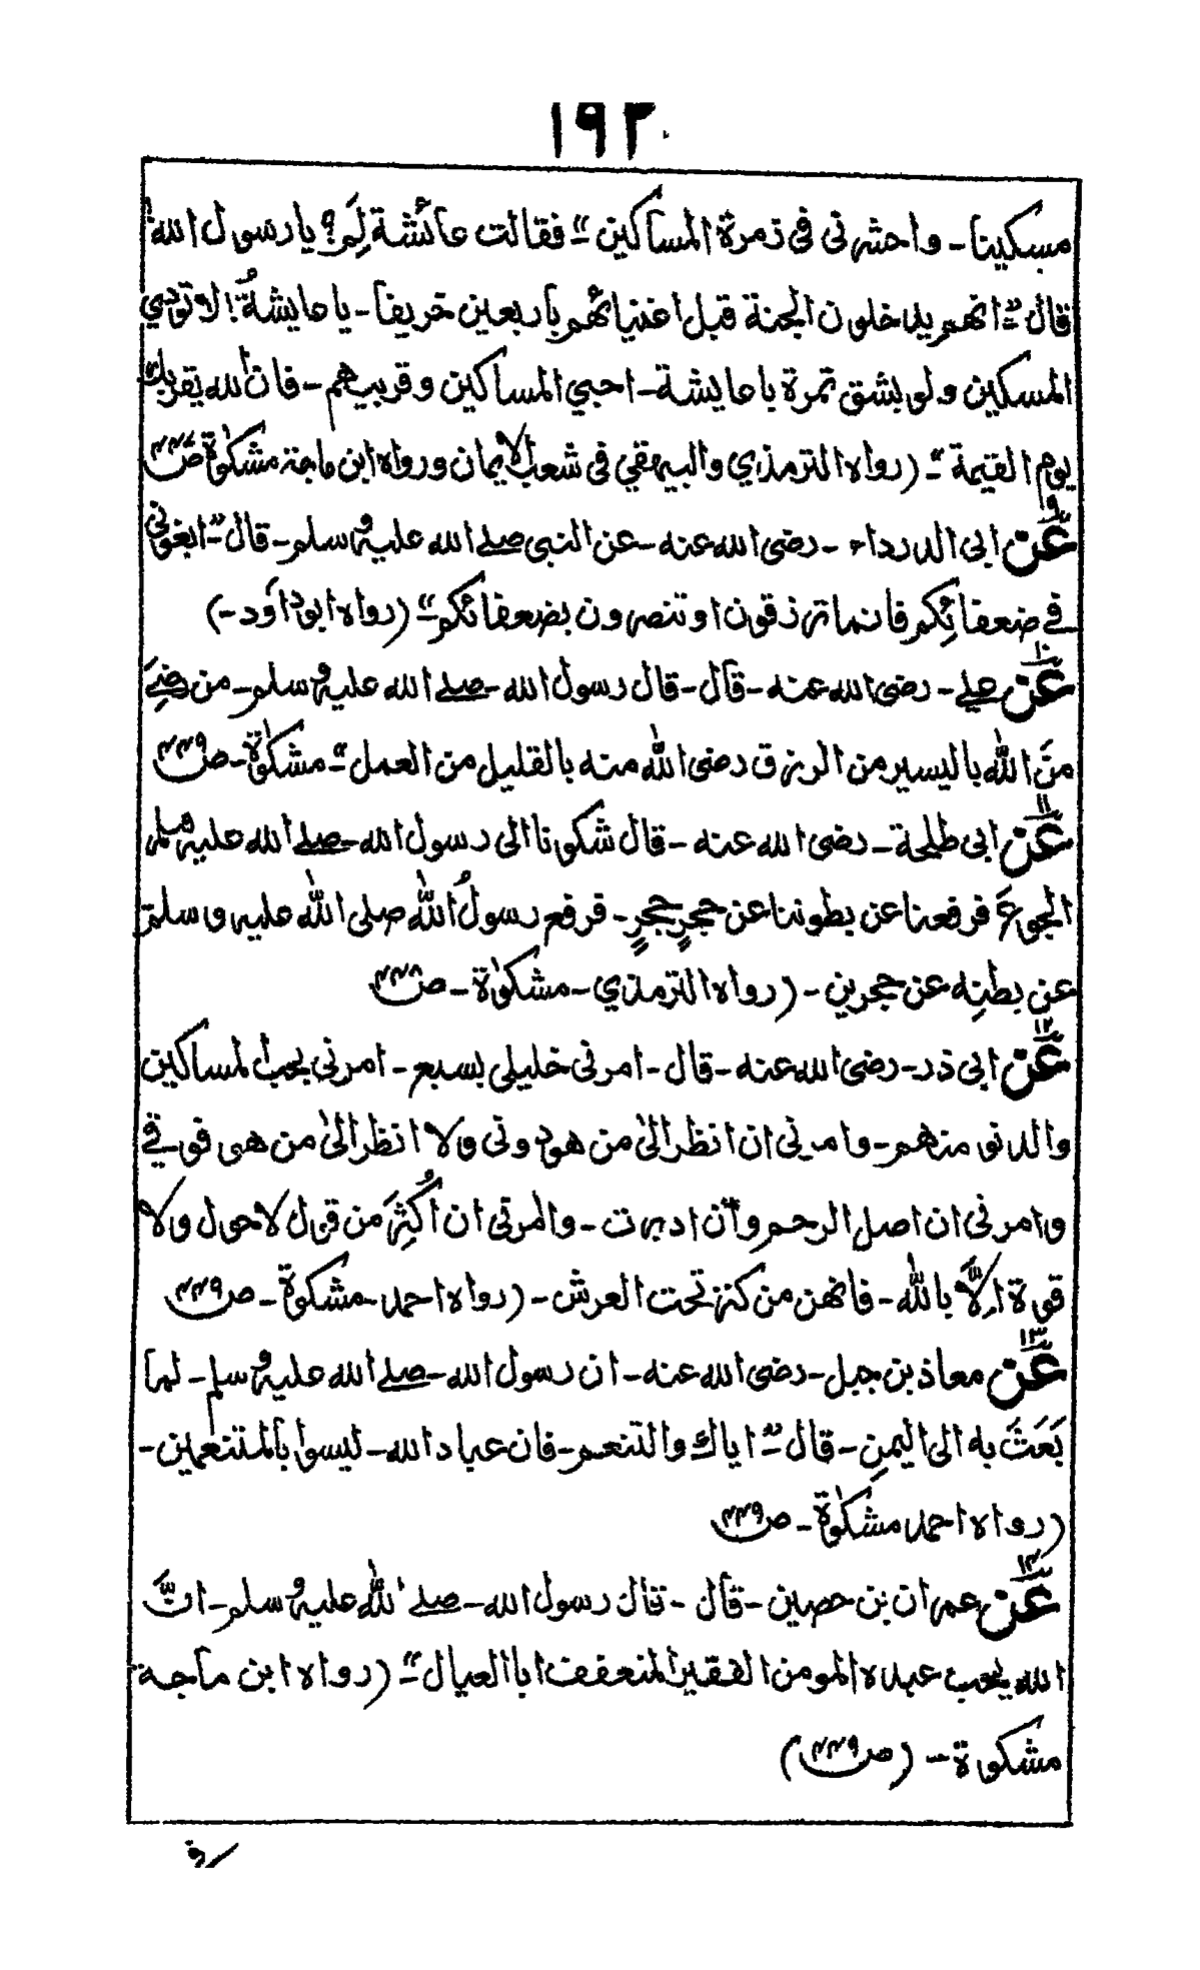 ١٩٣
مسكينا۔ واحشرنى فى زمرة المساكين"۔ فقالت عائشة لِمَ؟ يا رسول الله!
قال۔"انهم يدخلون الجنة قبل اغنيائهم باربعين خريفا۔ يا عايشةُ! لا تودي
المسكين ولو بشق تمرة يا عايشة۔ احبي المساكين وقربيهم۔ فان الله يقربك
يوم القيمة"۔ (رواه الترمذي والبيهقي فى شعب الايمان ورواه ابن ماجة مشكوٰة ص
٩ عن ابى الدرداء۔ رضى الله عنه۔ عن النبى صلے الله عليه وسلم۔ قال۔"ابغونى
فے ضعفائِكم فانما ترزقون او تنصرون بضعفائكم"۔ (رواه ابوداؤد۔)
١٠ عن علے۔ رضى الله عنه۔ قال۔ قال رسول الله۔ صلے الله عليه وسلم۔ من رضِىَ
منَ الله باليسير من الرزق رضى الله منه بالقليل من العمل"۔ مشكوٰة۔ ص ٤٤٩
١١ عن ابى طلحة۔ رضى الله عنه۔ قال شكونا الى رسول الله۔ صلے الله عليه وسلم
الجوعَ فرفعنا عن بطوننا عن حجرٍ حجرٍ۔ فرفع رسولُ الله صلى الله عليه وسلم
عن بطنِه عن حجرين۔ (رواه الترمذي۔ مشكوٰة۔ ص ٤٤٨
١٢ عن ابى ذر۔ رضى الله عنه۔ قال۔ امرنى خليلى بسبع۔ امرنى بحب المساكين
والدنو منهم۔ وامرنى ان انظر الىٰ من هو دونى ولا انظر الىٰ من هو فوقے
وامرنى ان اصل الرحم وأن ادبرت۔ وامرنى ان اُكثِرَ من قول لا حول ولا
قوة اِلاَّ بالله۔ فانهن من كنز تحت العرش۔ (رواه احمد۔ مشكوٰة۔ ص ٤٤٩
١٣ عن معاذ بن جبل۔ رضى الله عنه۔ ان رسول الله۔ صلے الله عليه وسلم۔ لما
بَعَثَ به الى اليمنِ۔ قال۔"اياك والتنعم۔ فان عباد الله۔ ليسوا بالمتنعمين۔
(رواه احمد مشكوٰة۔ ص ٤٤٩
١٤ عن عمران بن حصين۔ قال۔ قال رسول الله۔ صلے الله عليه وسلم۔ انَّ
الله يحب عبده المومن الفقير المتعفف ابا العيال"۔ (رواه ابن ماجة
مشكوة۔ (ص ٤٤٩)